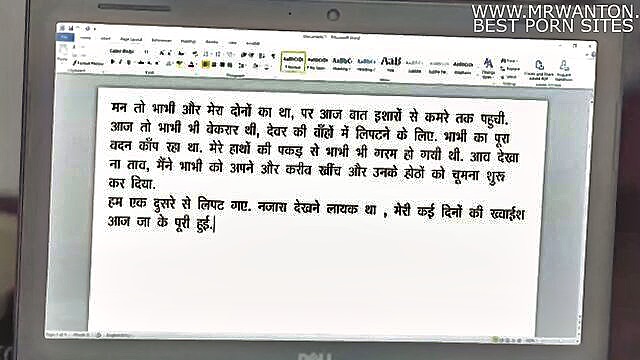 WWW.MRWANTON.
BEST PORN SITES
मन तो भाभी और मेरा दोनों का था, पर आज बात इशारों से कमरे तक पहुची.
आज तो भाभी भी बेकरार थी, देवर की बाँहों में लिपटने के लिए. भाभी का पूरा
वदन काँप रहा था. मेरे हाथों की पकड़ से भाभी भी गरम हो गयी थी. आव देखा
ना ताव, मैंने भाभी को अपने और करीव खींच और उनके होठों को चूमना शुरू
कर दिया.
हम एक दुसरे से लिपट गए. नजारा देखने लायक था , मेरी कई दिनों की ख्वाईश
आज जा के पूरी हुई.
DELL